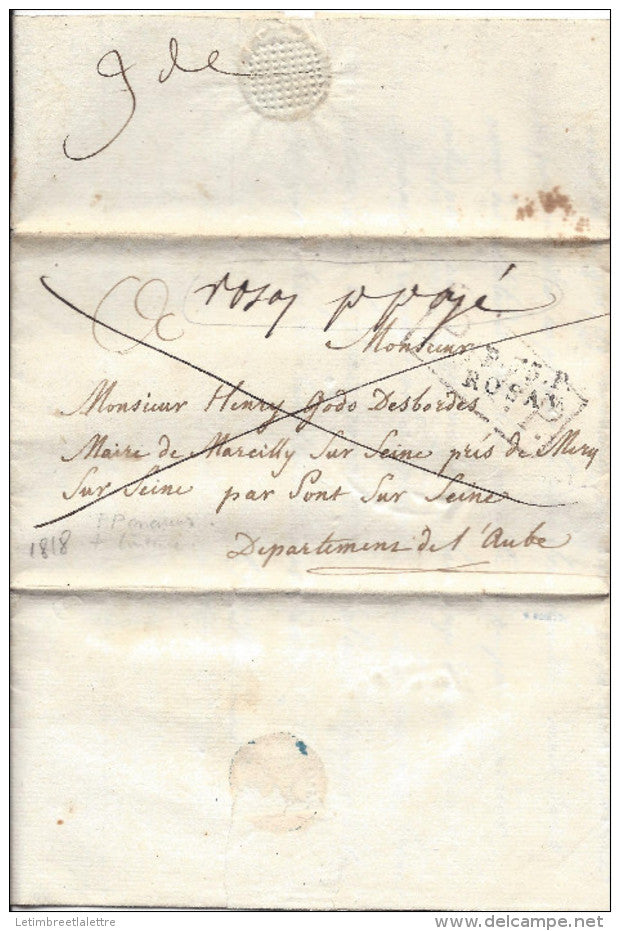 9 de
rosoy p payé
Monsieur
P.75.P
ROSAY
Monsieur Henry Godo Desbordes
Maire de Marcilly Sur Seine prés de Mery
Sur Seine par Pont Sur Seine
1818
Departement de l'Aube
Letimbreetlalettre
www.delcampe.net